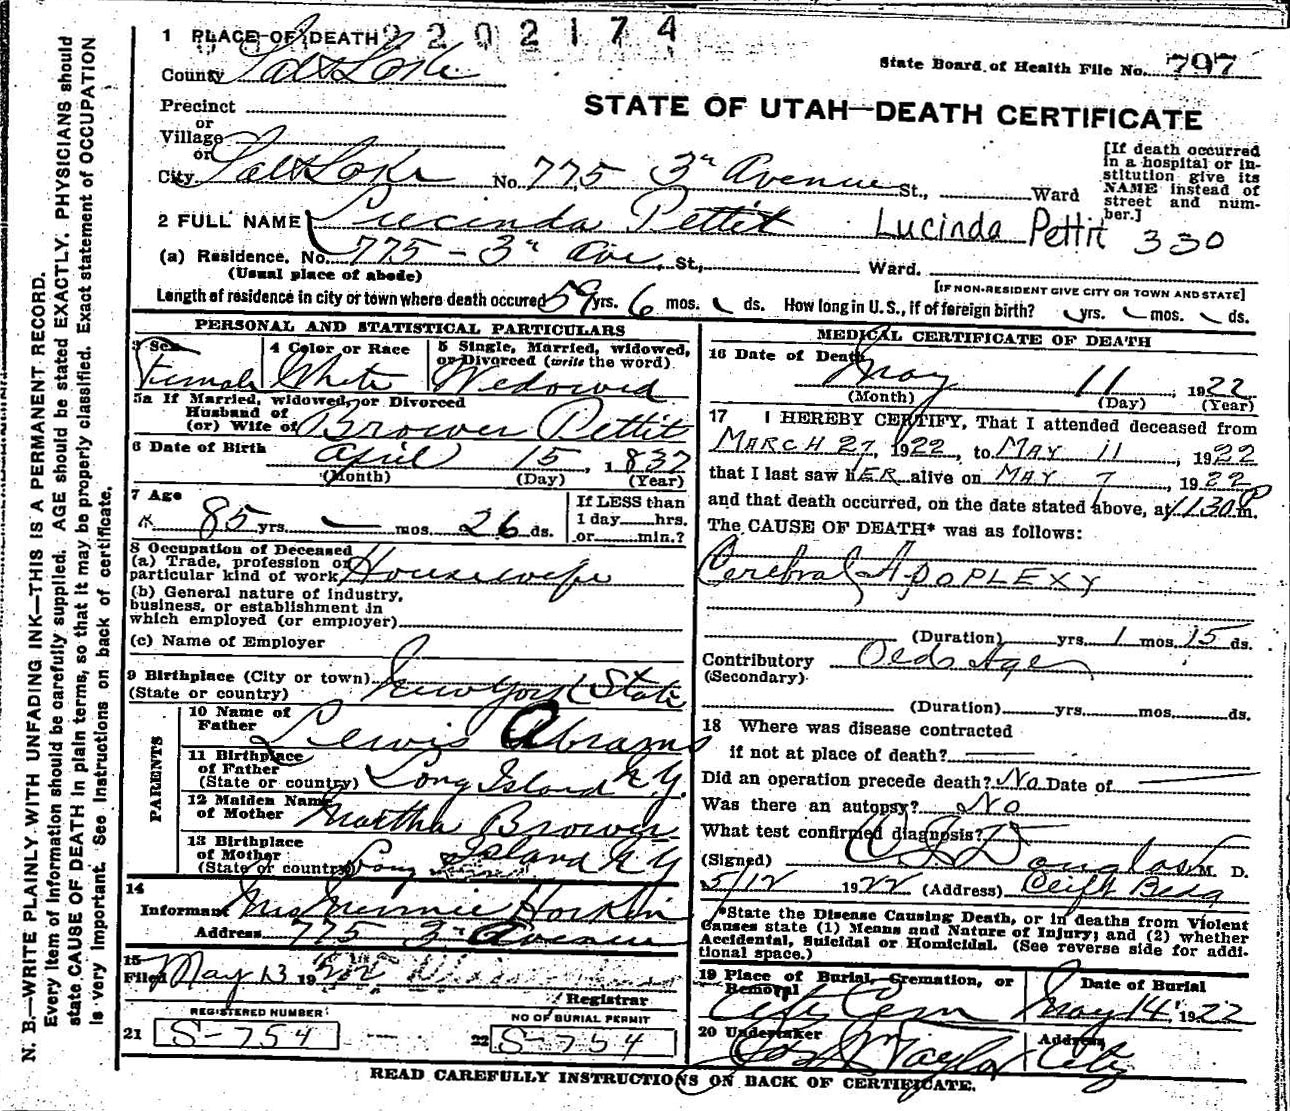 N. B.—WRITE PLAINLY WITH UNFADING INK—THIS IS A PERMANENT RECORD.
Every item of information should be carefully supplied. AGE should be stated EXACTLY. PHYSICIANS should
state CAUSE OF DEATH in plain terms, so that it may be properly classified. Exact statement of OCCUPATION
is very important. See instructions on back of certificate.
1 PLACE OF DEATH 2202174
County Salt Lake
State Board of Health File No. 797
Precinct
or
Village
or
City Salt Lake No. 775 3rd Avenue St., Ward
STATE OF UTAH—DEATH CERTIFICATE
[If death occurred in a hospital or institution give its NAME instead of street and number.]
2 FULL NAME Lucinda Pettit Lucinda Pettit 330
(a) Residence. No. 775 - 3rd Ave, St., Ward.
(Usual place of abode) [IF NON-RESIDENT GIVE CITY OR TOWN AND STATE]
Length of residence in city or town where death occured 59 yrs. 6 mos. ds. How long in U.S., if of foreign birth? yrs. mos. ds.
PERSONAL AND STATISTICAL PARTICULARS
3 Sex Female
4 Color or Race White
5 Single, Married, widowed, or Divorced (write the word) Wedowed
5a If Married, widowed, or Divorced
Husband of
(or) Wife of Brower Pettit
6 Date of Birth April 15, 1837
(Month) (Day) (Year)
7 Age 85 yrs. — mos. 26 ds.
If LESS than
1 day hrs.
or min.?
8 Occupation of Deceased
(a) Trade, profession or
particular kind of work Housewife
(b) General nature of industry,
business, or establishment in
which employed (or employer)
(c) Name of Employer
9 Birthplace (City or town)
(State or country) New York State
PARENTS
10 Name of Father Lewis Abrams
11 Birthplace of Father (State or country) Long Island N.Y.
12 Maiden Name of Mother Martha Brower
13 Birthplace of Mother (State or country) Long Island N.Y
14
Informant Mrs Minnie
Address 775 3rd Avenue
15
Filed May 13 1922
Registrar
REGISTERED NUMBER
21 S-754
NO OF BURIAL PERMIT
22 S-754
MEDICAL CERTIFICATE OF DEATH
16 Date of Death May 11, 1922
(Month) (Day) (Year)
17 I HEREBY CERTIFY, That I attended deceased from
MARCH 27, 1922, to MAY 11, 1922
that I last saw hER alive on MAY 7, 1922
and that death occurred, on the date stated above, at 1130 P m.
The CAUSE OF DEATH* was as follows:
Cerebral APOPLEXY
(Duration) yrs. 1 mos. 15 ds.
Contributory Old Age
(Secondary)
(Duration) yrs. mos. ds.
18 Where was disease contracted
if not at place of death?
Did an operation precede death? No Date of
Was there an autopsy? No
What test confirmed diagnosis?
(Signed) Douglas M. D.
5/12 1922 (Address) Bldg
*State the Disease Causing Death, or in deaths from Violent
Causes state (1) Means and Nature of Injury; and (2) whether
Accidental, Suicidal or Homicidal. (See reverse side for addi-
tional space.)
19 Place of Burial, Cremation, or Removal City Cem
Date of Burial May 14, 1922
20 Undertaker Jos Wm Taylor
Address City
READ CAREFULLY INSTRUCTIONS ON BACK OF CERTIFICATE.